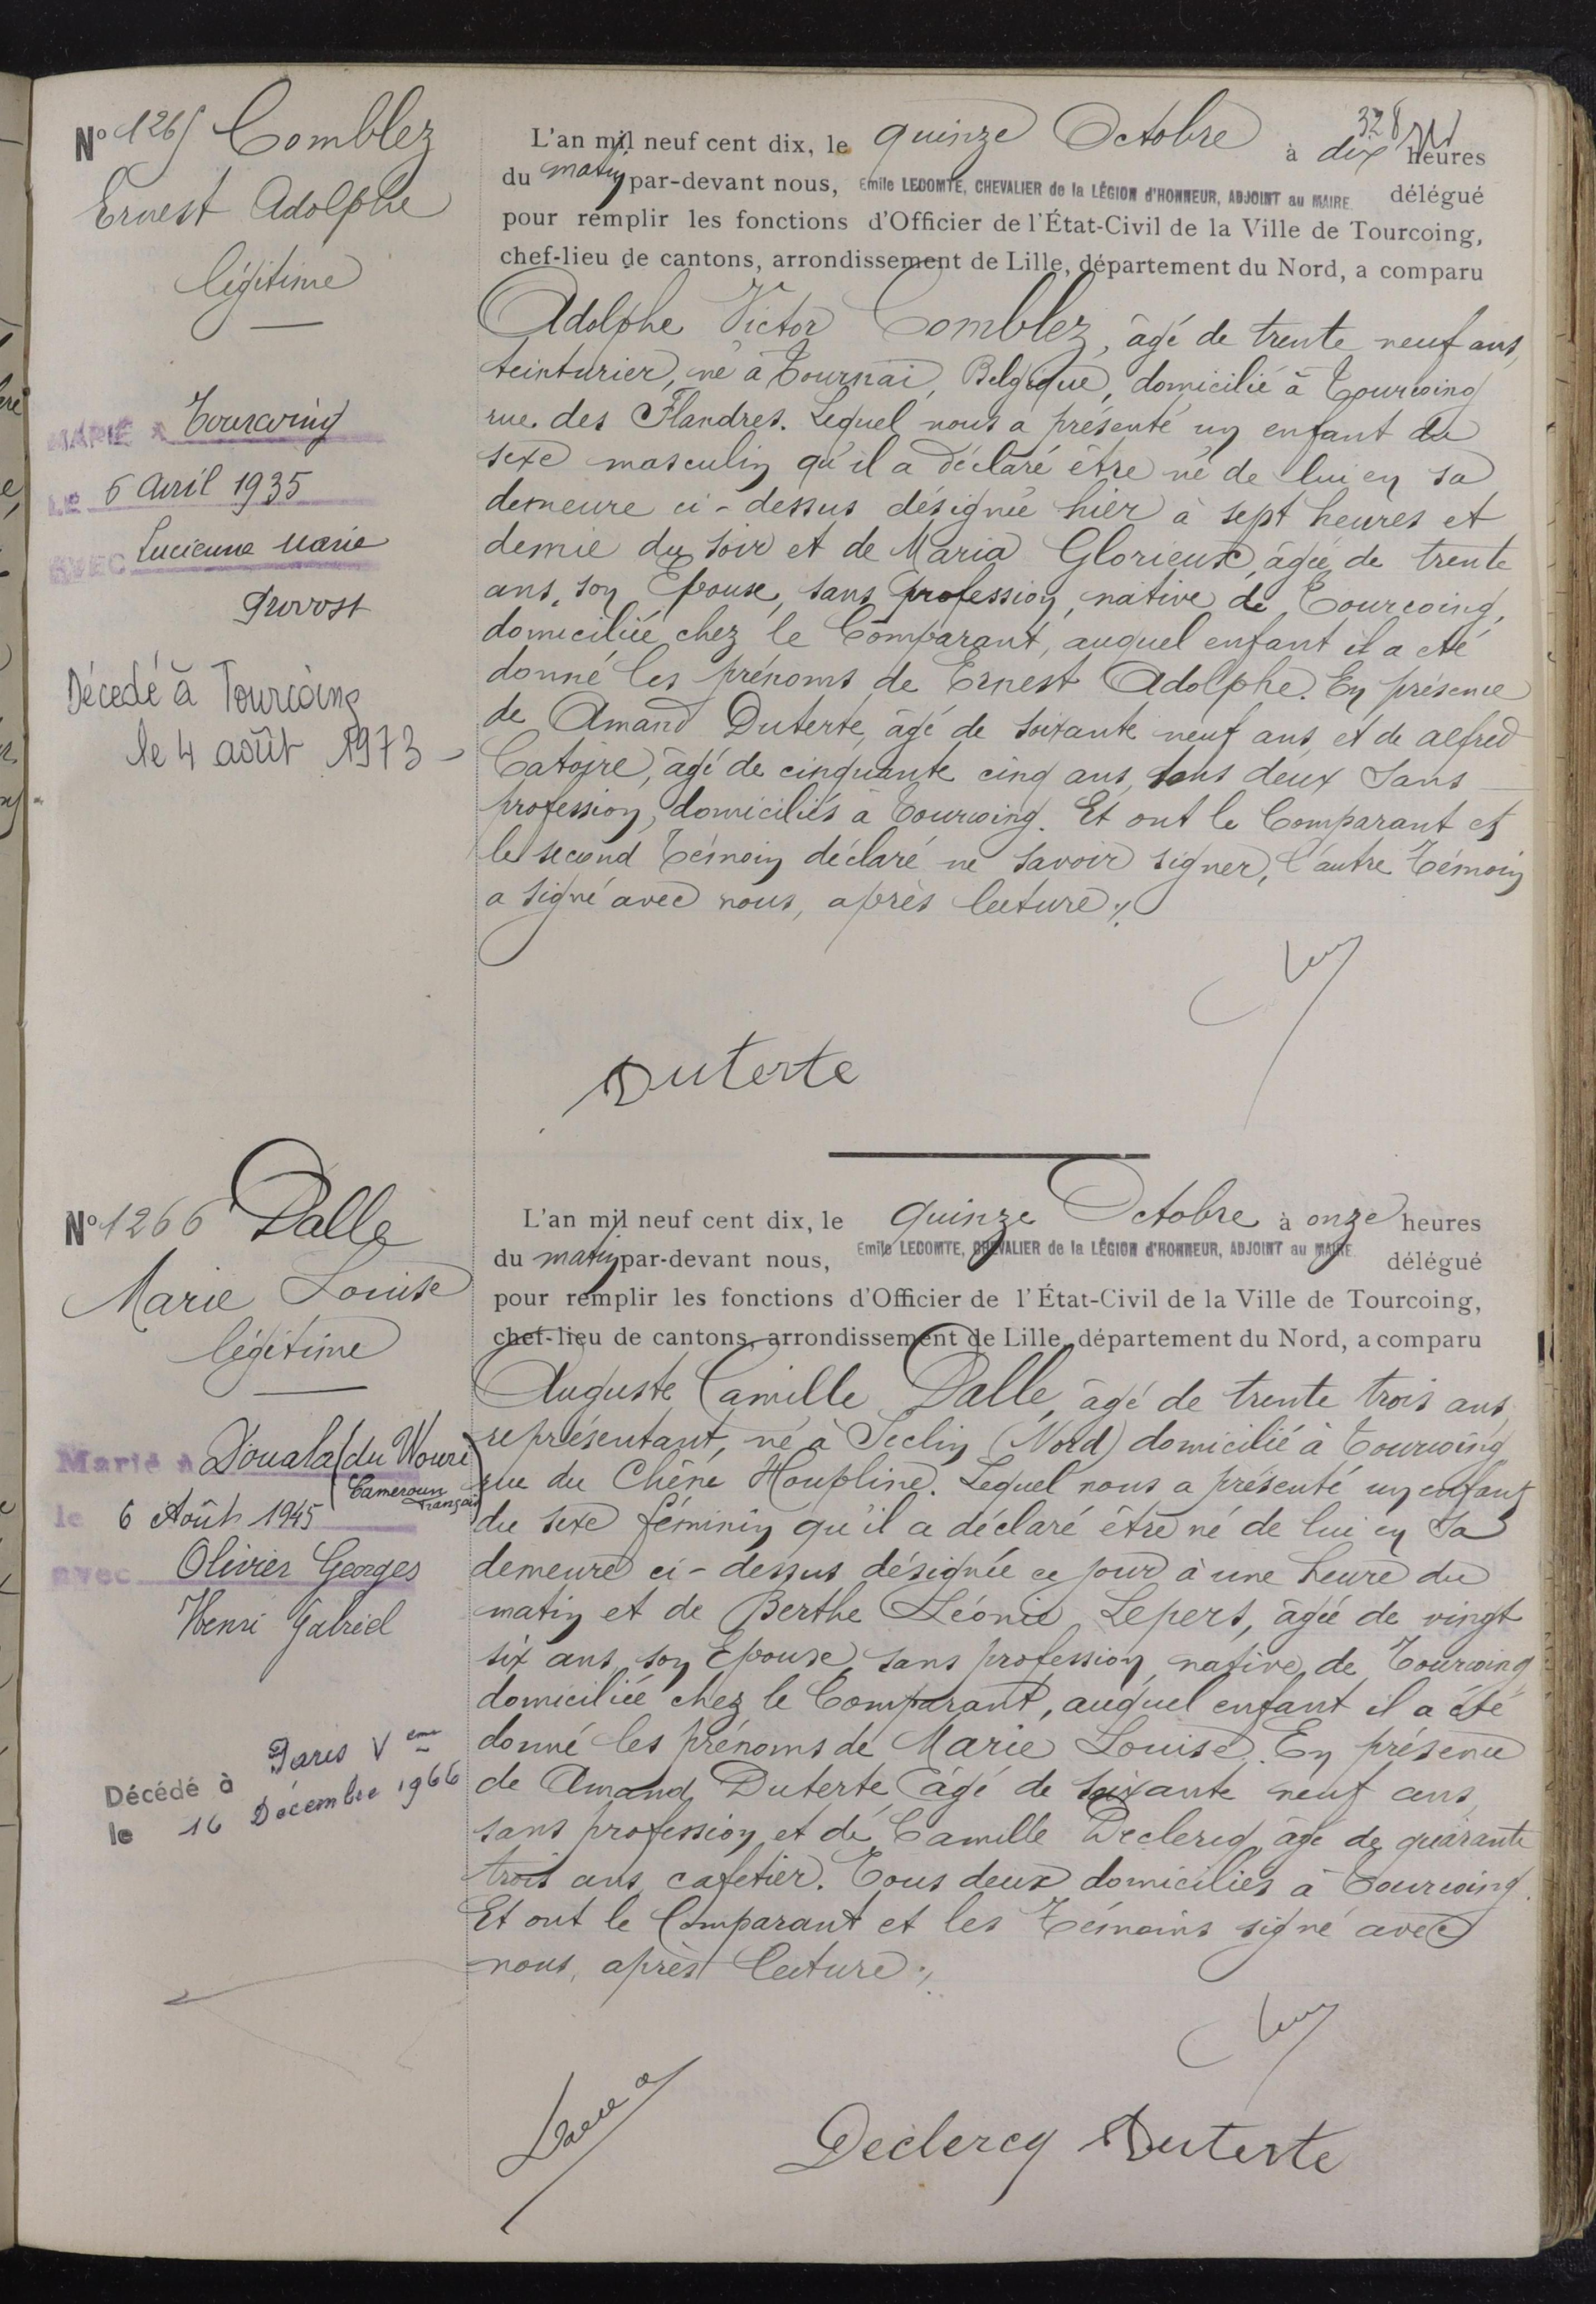 328
Nº 1265 Comblez
Ernest Adolphe
légitime
MARIÉ A Tourcoing
LE 6 Avril 1935
AVEC Lucienne Marie
Provost
Décedé à Tourcoing
le 4 août 1973
L'an mil neuf cent dix, le quinze Octobre à dix heures
du matin par-devant nous, Emile LECOMTE, CHEVALIER de la LÉGION d'HONNEUR, ADJOINT au MAIRE. délégué
pour remplir les fonctions d'Officier de l'État-Civil de la Ville de Tourcoing,
chef-lieu de cantons, arrondissement de Lille, département du Nord, a comparu
Adolphe Victor Comblez, âgé de trente neuf ans,
teinturier, né à Tournai, Belgique, domicilié à Tourcoing
rue des Flandres. Lequel nous a présenté un enfant du
sexe masculin qu'il a déclaré être né de lui en sa
demeure ci-dessus désignée hier à sept heures et
demie du soir et de Maria Glorieux, âgée de trente
ans, son Epouse, sans profession, native de Tourcoing,
domiciliée chez le Comparant, auquel enfant il a été
donné les prénoms de Ernest Adolphe. En présence
de Amand Duterte, âgé de soixante neuf ans, et de alfred
Catoire, âgé de cinquante cinq ans, tous deux sans
profession, domiciliés à Tourcoing. Et ont le Comparant et
le second Témoin déclaré ne savoir signer, l'autre Témoin
a signé avec nous, après lecture ./.
Duterte
Nº 1266 Dalle
Marie Louise
légitime
Marié à Douala (du Wouri
Cameroun
Français)
le 6 Août 1945
avec Olivier Georges
Henri Gabriel
Décédé à Paris Vème
le 16 Décembre 1966
L'an mil neuf cent dix, le quinze Octobre à onze heures
du matin par-devant nous, Emile LECOMTE, CHEVALIER de la LÉGION d'HONNEUR, ADJOINT au MAIRE. délégué
pour remplir les fonctions d'Officier de l'État-Civil de la Ville de Tourcoing,
chef-lieu de cantons, arrondissement de Lille, département du Nord, a comparu
Auguste Camille Dalle, âgé de trente trois ans,
représentant, né à Seclin (Nord) domicilié à Tourcoing
rue du Chêne Houpline. Lequel nous a présenté un enfant
du sexe féminin qu'il a déclaré être né de lui en sa
demeure ci-dessus désignée ce jour à une heure du
matin et de Berthe Léonie Lepers, âgée de vingt
six ans, son Epouse, sans profession, native de Tourcoing
domiciliée chez le Comparant, auquel enfant il a été
donné les prénoms de Marie Louise. En présence
de Amand Duterte, âgé de soixante neuf ans,
sans profession, et de Camille Declercq, âgé de quarante
trois ans, cafetier. Tous deux domiciliés à Tourcoing.
Et ont le Comparant et les Témoins signé avec
nous, après lecture ./.
Declercq Duterte